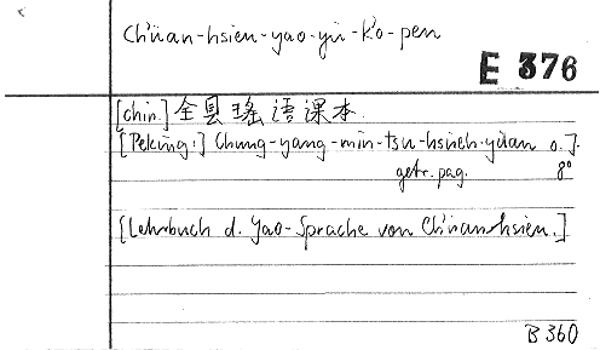 Ch'üan-hsien-yao-yü-k'o-pen
E 376
[chin.] 全县瑤语课本
[Peking:] Chung-yang-min-tsu-hsüeh-yüan o.J.
getr. pag. 8°
[Lehrbuch d. Yao-Sprache von Ch'üan-hsien.]
B 360